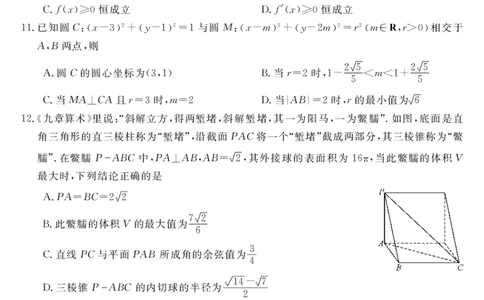 C.f(x)≥0 恒成立 D.f′(x)≥0 恒成立
11.已知圆 C:(x-3)²+(y-1)²=1 与圆 M:(x-m)²+(y-2m)²=r²(m∈R,r>0)相交于
A,B 两点,则
A.圆 C 的圆心坐标为(3,1) B.当 r=2 时,1-2√5/5<m<1+2√5/5
C.当 MA⊥CA 且 r=3 时,m=2 D.当|AB|=2 时,r 的最小值为√6
12.《九章算术》里说:“斜解立方,得两堑堵,斜解堑堵,其一为阳马,一为鳖臑”.如图,底面是直
角三角形的直三棱柱称为“堑堵”,沿截面 PAC 将一个“堑堵”截成两部分,其三棱锥称为“鳖
臑”.在鳖臑 P-ABC 中,PA⊥AB,AB=√2,其外接球的表面积为 16π,当此鳖臑的体积 V
最大时,下列结论正确的是
A.PA=BC=2√2
B.此鳖臑的体积 V 的最大值为7√2/6
C.直线 PC 与平面 PAB 所成角的余弦值为3/4
D.三棱锥 P-ABC 的内切球的半径为(√14-√7)/2
P
A
B C